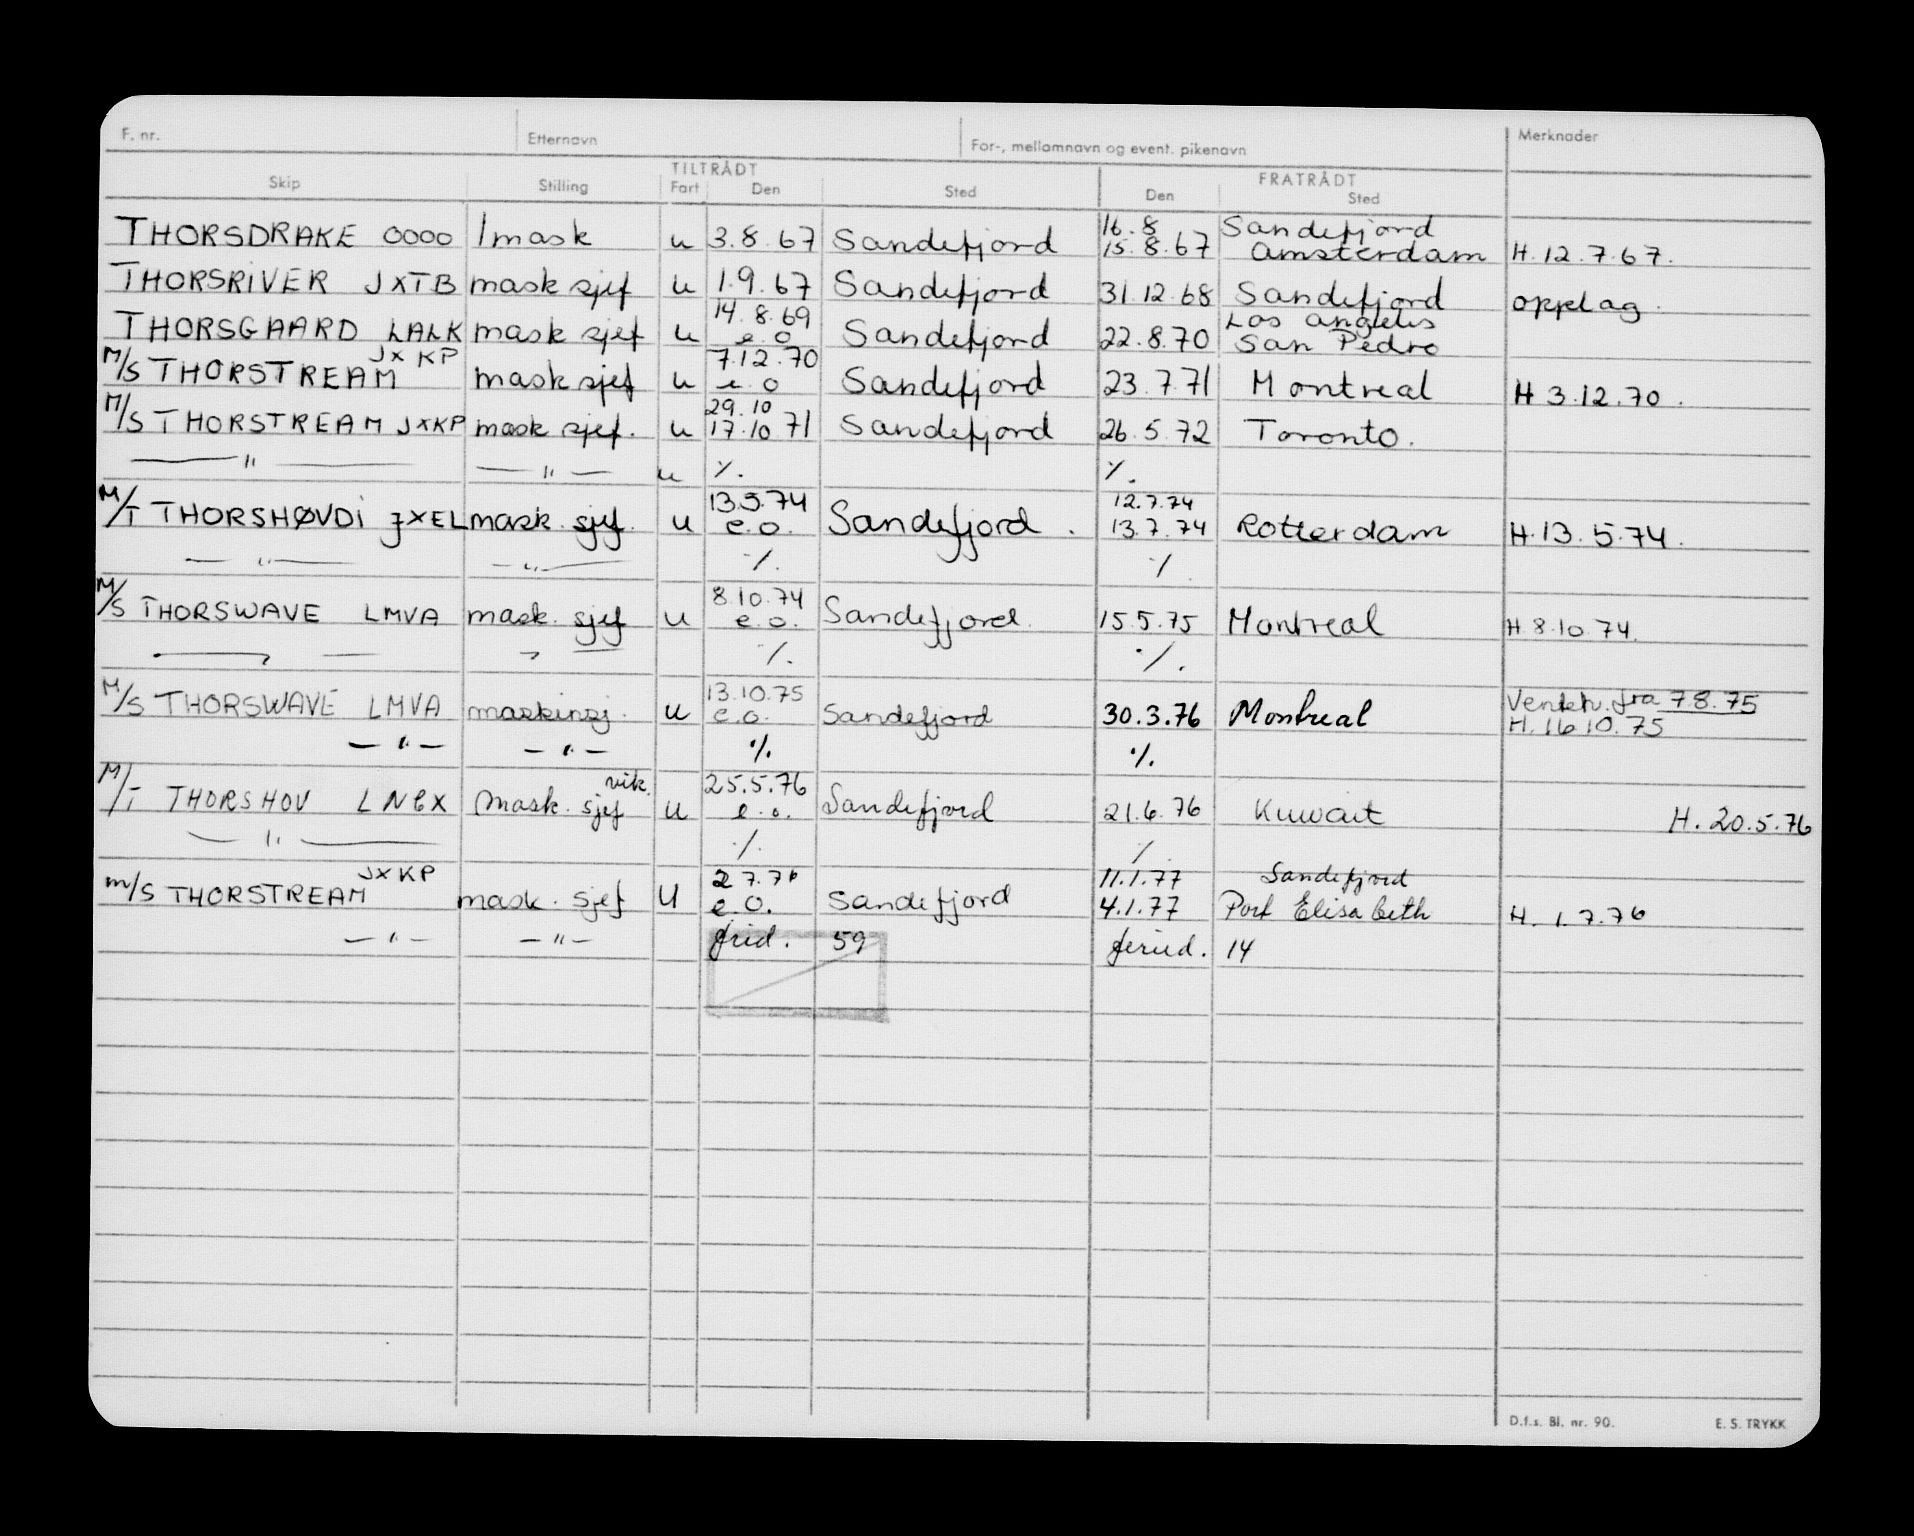 F. nr. Etternavn For-, mellomnavn og event. pikenavn Merknader
TILTRÅDT FRATRÅDT
Skip Stilling Fart Den Sted Den Sted
16.8 Sandefjord
THORSDRAKE OOOO 1mask u 3.8.67 Sandefjord 15.8.67 Amsterdam H.12.7.67.
THORSRIVER JXTB mask sjef u 1.9.67 Sandefjord 31.12.68 Sandefjord opplag.
14.8.69 Los Angeles
THORSGAARD LALK mask sjef u e.o Sandefjord 22.8.70 San Pedro
JXKP 7.12.70
M/S THORSTREAM mask sjef u e.o Sandefjord 23.7.71 Montreal H 3.12.70.
29.10
M/S THORSTREAM JXKP mask sjef. u 17.10.71 Sandefjord 26.5.72 Toronto.
— " — — " — u %. %.
13.5.74 12.7.74
M/T THORSHØVDI JXEL mask. sjef. u e.o. Sandefjord. 13.7.74 Rotterdam H.13.5.74.
— " — — " — %. %
8.10.74
M/S THORSWAVE LMVA mask. sjef u e.o. Sandefjord. 15.5.75 Montreal H 8.10.74.
%. %.
13.10.75 Ventet. fra 7.8.75
M/S THORSWAVE LMVA maskinsj. u e.o. Sandefjord 30.3.76 Montreal H.16.10.75
— " — — " — %. %.
vik. 25.5.76
M/T THORSHOV LNCX Mask. sjef u e.o. Sandefjord 21.6.76 Kuwait H. 20.5.76
— " — %. %
JXKP 2 7.76 11.1.77 Sandefjord
m/S THORSTREAM mask. sjef U e.o. Sandefjord 4.1.77 Port Elisabeth H. 1.7.76
— " — — " — frid. 59 feried. 14
D.f.s. Bl. nr. 90. E. S. TRYKK